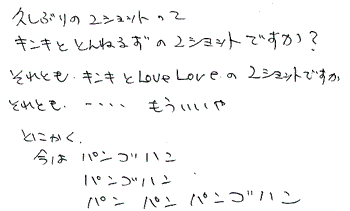 久しぶりの2ショットって
キンキととんねるずの2ショットですか?
それとも キンキとLove Loveの2ショットですか
それとも ・・・・ もういいや
とにかく、
今は パンゴハン
パンゴハン
パン パン パンゴハン